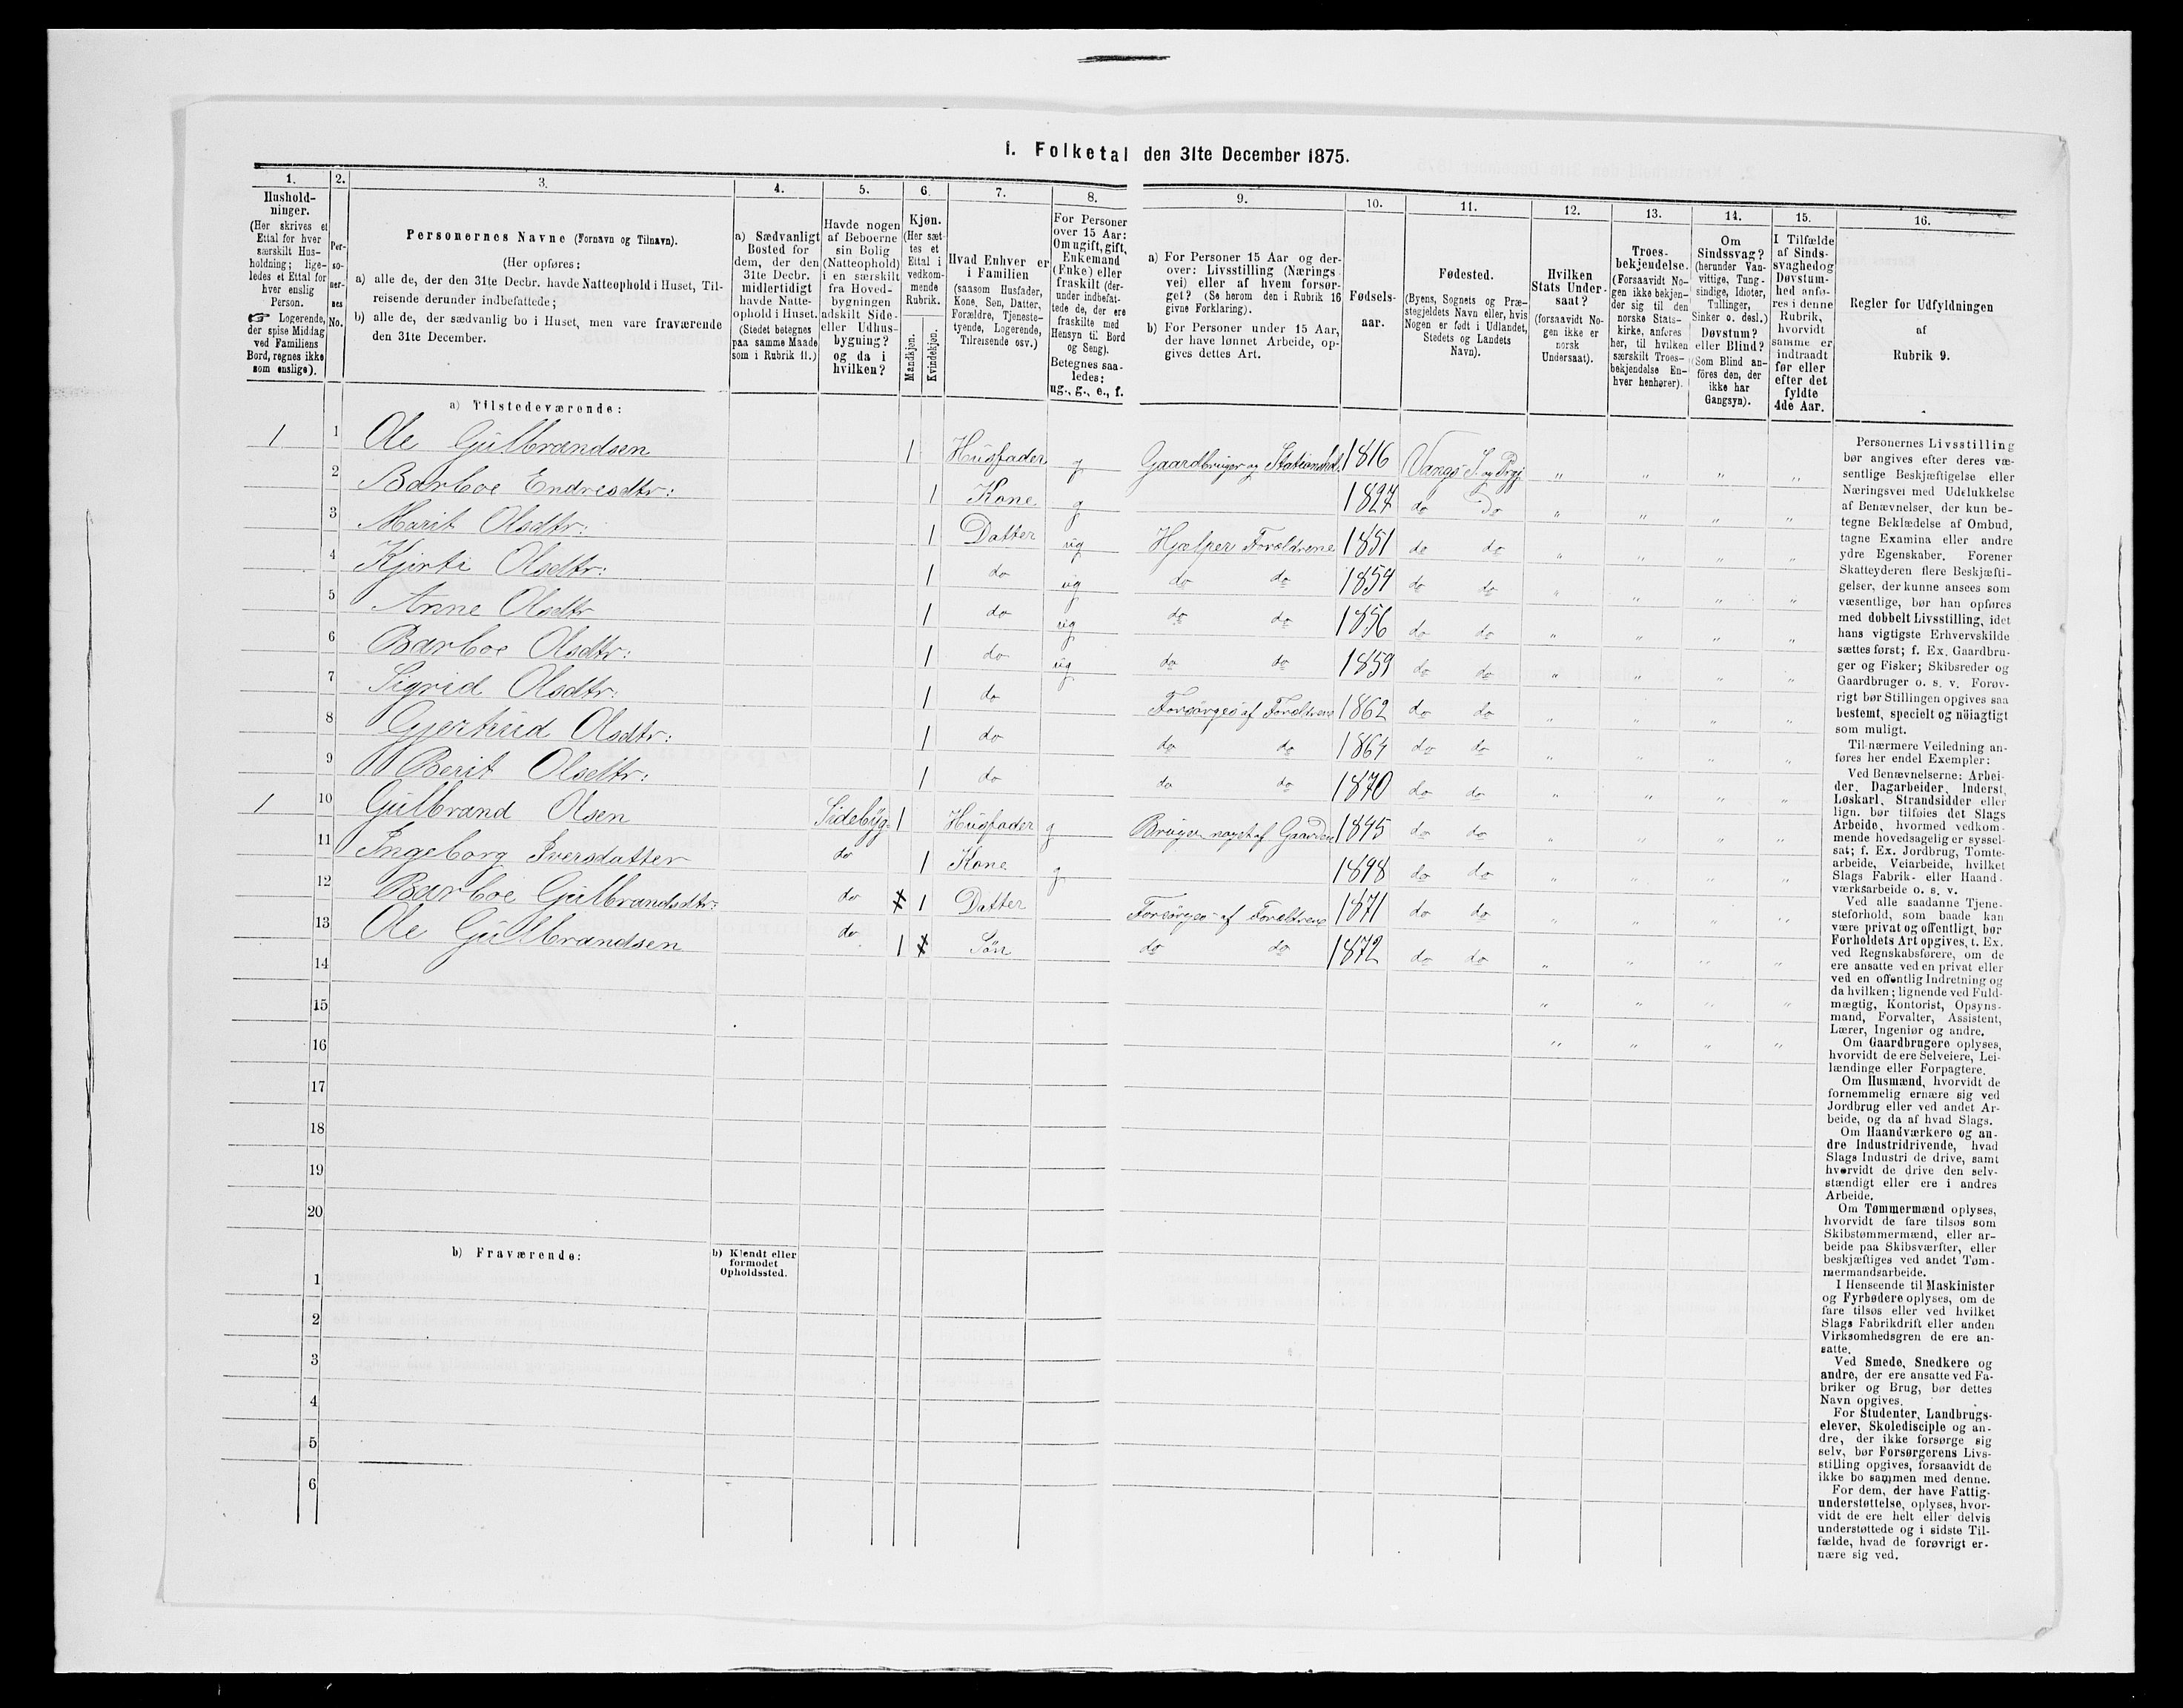 1. Folketal den 31te December 1875.
1. 2. 3. 4. 5. 6. 7. 8. 9. 10. 11. 12. 13. 14. 15. 16.
Hushold-
ninger.
(Her skrives et
Ettal for hver
særskilt Hus-
holdning; lige-
ledes et Ettal for
hver enslig
Person.
☞ Logerende,
der spise Middag
ved Familiens
Bord, regnes ikke
som enslige).
Per-
so-
ner-
nes
No.
Personernes Navne (Fornavn og Tilnavn).
(Her opføres:
a) alle de, der den 31te Decbr. havde Natteophold i Huset, Til-
reisende derunder indbefattede;
b) alle de, der sædvanlig bo i Huset, men vare fraværende
den 31te December.
a) Sædvanligt
Bosted for
dem, der den
31te Decbr.
midlertidigt
havde Natte-
ophold i Huset.
(Stedet betegnes
paa samme Maade
som i Rubrik 11.)
Havde nogen
af Beboerne
sin Bolig
(Natteophold)
i en særskilt
fra Hoved-
bygningen
adskilt Side-
eller Udhus-
bygning?
og da i
hvilken?
Kjøn.
(Her sæt-
tes et
Ettal i
vedkom-
mende
Rubrik.
Mandkjøn.
Kvindekjøn.
Hvad Enhver er
i Familien
(saasom Husfader,
Kone, Søn, Datter,
Forældre, Tjeneste-
tyende, Logerende,
Tilreisende osv.)
For Personer
over 15 Aar:
Om ugift, gift,
Enkemand
(Enke) eller
fraskilt (der-
under indbefat-
tede de, der ere
fraskilte med
Hensyn til Bord
og Seng).
Betegnes saa-
ledes:
ug., g., e., f.
a) For Personer 15 Aar og der-
over: Livsstilling (Nærings-
vei) eller af hvem forsør-
get? (Se herom den i Rubrik 16
givne Forklaring).
b) For Personer under 15 Aar,
der have lønnet Arbeide, op-
gives dettes Art.
Fødsels-
aar.
Fødested.
(Byens, Sognets og Præ-
stegjeldets Navn eller, hvis
Nogen er født i Udlandet,
Stedets og Landets
Navn).
Hvilken
Stats Under-
saat?
(forsaavidt No-
gen ikke er
norsk
Undersaat).
Troes-
bekjendelse.
(Forsaavidt No-
gen ikke bekjen-
der sig til den
norske Stats-
kirke, anføres
her, til hvilken
særskilt Troes-
bekjendelse En-
hver henhører).
Om
Sindssvag?
(herunder Van-
vittige, Tung-
sindige, Idioter,
Tullinger,
Sinker o. desl.)
Døvstum?
eller Blind?
(Som Blind an-
føres den, der
ikke har
Gangsyn).
I Tilfælde
af Sinds-
svaghed og
Døvstum-
hed anfø-
res i denne
Rubrik,
hvorvidt
samme er
indtraadt
før eller
efter det
fyldte
4de Aar.
Regler for Udfyldningen
af
Rubrik 9.
a) Tilstedeværende:
1 1 Ole Gulbrandsen 1 Husfader g Gaardbruger og 1816 Vangs S. og Prgj " " " "
2 Barboe Endresdtr: 1 Kone g 1827 do Do " " " "
3 Marit Olsdtr: 1 Datter ug Hjælper Forældrene 1851 do do " " " "
4 Kjerti Olsdtr: 1 do ug do do 1854 do do " " " "
5 Anne Olsdtr 1 do ug do do 1856 do do " " " "
6 Barboe Olsdtr: 1 do ug do do 1859 do do " " " "
7 Sigrid Olsdtr: 1 do Forsørges af Forældrene 1862 do do " " " "
8 Gjertrud Olsdtr: 1 do do do 1864 do do " " " "
9 Berit Olsdtr: 1 do do do 1870 do do " " " "
1 10 Gulbrand Olsen Sidebyg. 1 Husfader g Bruger noget af Gaarden 1845 do do " " " "
11 Ingeborg Iversdatter do 1 Kone g 1848 do do " " " "
12 Barboe Gulbrandsdtr: do 1 Datter Forsørges af Forældrene 1871 do do " " " "
13 Ole Gulbrandsen do 1 Søn do do 1872 do do " " " "
14 " " " "
15 " " " "
16
17
18
19
20
b) Fraværende:
b) Kjendt eller
formodet
Opholdssted.
1
2
3
4
5
6
Personernes Livsstilling
bør angives efter deres væ-
sentlige Beskjæftigelse eller
Næringsvei med Udelukkelse
af Benævnelser, der kun be-
tegne Beklædelse af Ombud,
tagne Examina eller andre
ydre Egenskaber. Forener
Skatteyderen flere Beskjæfti-
gelser, der kunne ansees som
væsentlige, bør han opføres
med dobbelt Livsstilling, idet
hans vigtigste Erhvervskilde
sættes først; f. Ex. Gaardbru-
ger og Fisker; Skibsreder og
Gaardbruger o. s. v. Forøv-
rigt bør Stillingen opgives saa
bestemt, specielt og nöiagtigt
som muligt.
Til nærmere Veiledning an-
føres her endel Exempler:
Ved Benævnelserne: Arbei-
der, Dagarbeider, Inderst,
Løskarl, Strandsidder eller
lign. bør tilføies det Slags
Arbeide, hvormed vedkom-
mende hovedsagelig er syssel-
sat; f. Ex. Jordbrug, Tomte-
arbeide, Veiarbeide, hvilket
Slags Fabrik- eller Haand-
værksarbeide o. s. v.
Ved alle saadanne Tjene-
steforhold, som baade kan
være privat og offentligt, bør
Forholdets Art opgives, t. Ex.
ved Regnskabsførere, om de
ere ansatte ved en privat eller
ved en offentlig Indretning og
da hvilken; lignende ved Fuld-
mægtig, Kontorist, Opsyns-
mand, Forvalter, Assistent,
Lærer, Ingeniør og andre.
Om Gaardbrugere oplyses,
hvorvidt de ere Selveiere, Lei-
lændinge eller Forpagtere.
Om Husmænd, hvorvidt de
fornemmelig ernære sig ved
Jordbrug eller ved andet Ar-
beide, og da af hvad Slags.
Om Haandværkere og an-
dre Industridrivende, hvad
Slags Industri de drive, samt
hvorvidt de drive den selv-
stændigt eller ere i andres
Arbeide.
Om Tømmermænd oplyses,
hvorvidt de fare tilsøs som
Skibstømmermænd, eller ar-
beide paa Skibsværfter, eller
beskjæftiges ved andet Tøm-
mermandsarbeide.
I Henseende til Maskinister
og Fyrbødere oplyses, om de
fare tilsøs eller ved hvilket
Slags Fabrikdrift eller anden
Virksomhedsgren de ere an-
satte.
Ved Smede, Snedkere og
andre, der ere ansatte ved Fa-
briker og Brug, bør dettes
Navn opgives.
For Studenter, Landbrugs-
elever, Skoledisciple og an-
dre, der ikke forsørge sig
selv, bør Forsørgerens Livs-
stilling opgives, forsaavidt de
ikke bo sammen med denne.
For dem, der have Fattig-
understøttelse, oplyses, hvor-
vidt de ere helt eller delvis
understøttede og i sidste Til-
fælde, hvad de forøvrigt er-
nære sig ved.